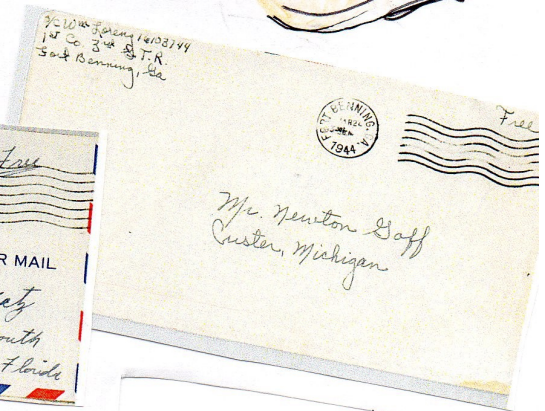 Wm Loreng 16103744
1st Co. 3rd S.T.R.
Fort Benning, Ga
FORT BENNING, GA.
1944
Free
Mr. Newton Goff
Custer, Michigan
Free
R MAIL
outh
Florida